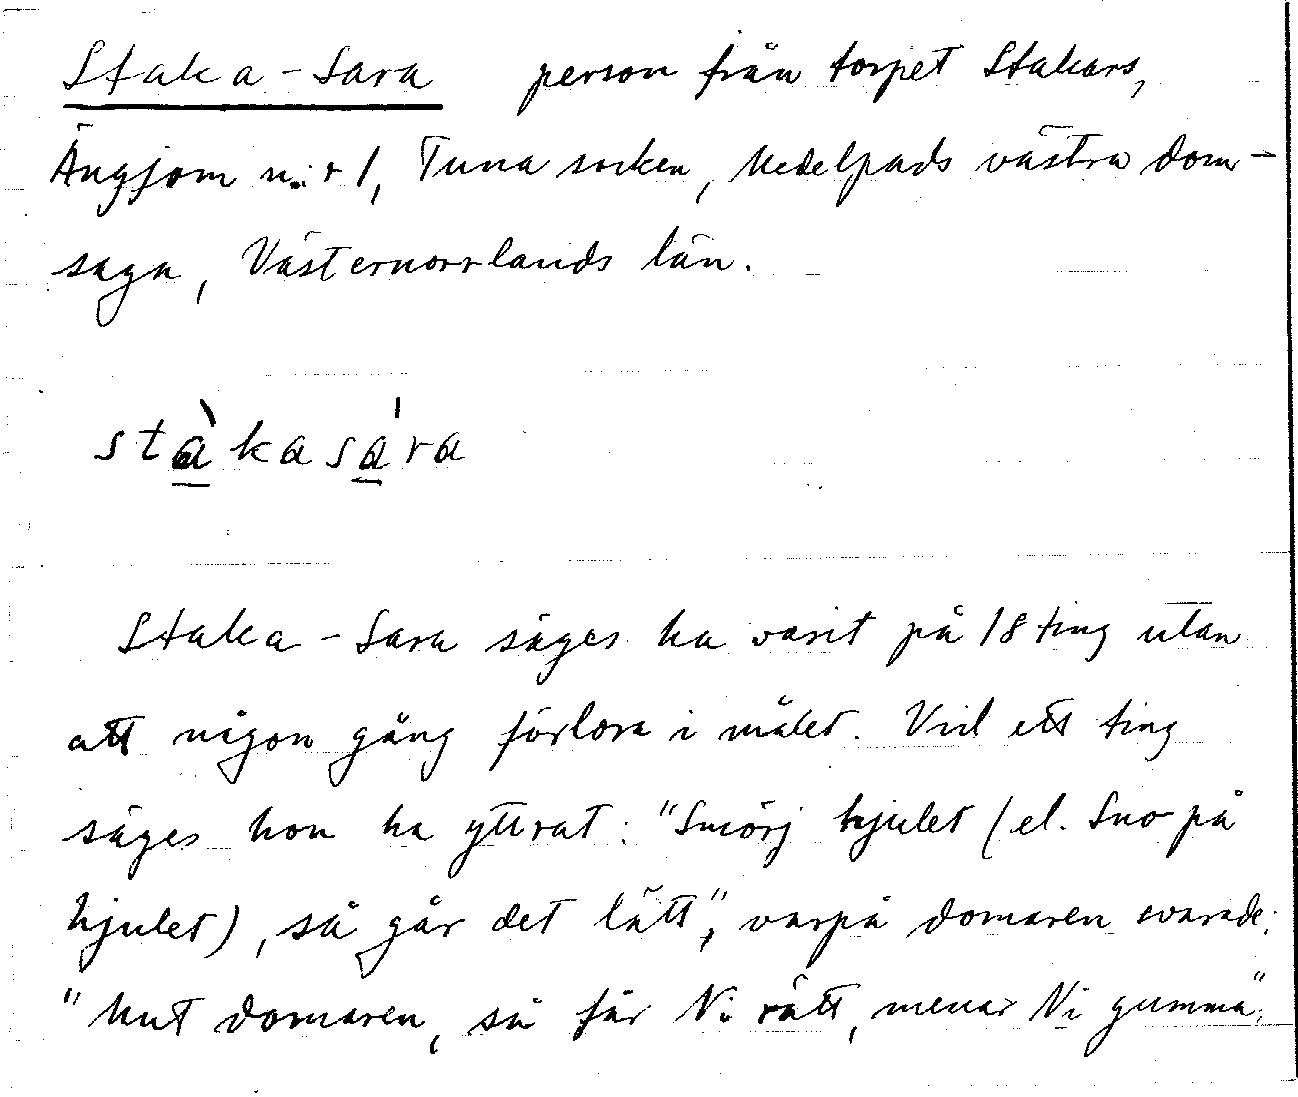 Staka-Sara person från torpet Stakars,
Ängjom n:r 1, Tuna socken, Medelpads västra dom-
saga, Västernorrlands län.
stàkasára
Staka-Sara säges ha varit på 18 ting utan
att någon gång förlora i målet. Vid ett ting
säges hon ha yttrat: "Smörj hjulet (el. Sno på
hjulet), så går det lätt", varpå domaren svarade:
"Mut domaren, så får Ni rätt, menar Ni gumma".